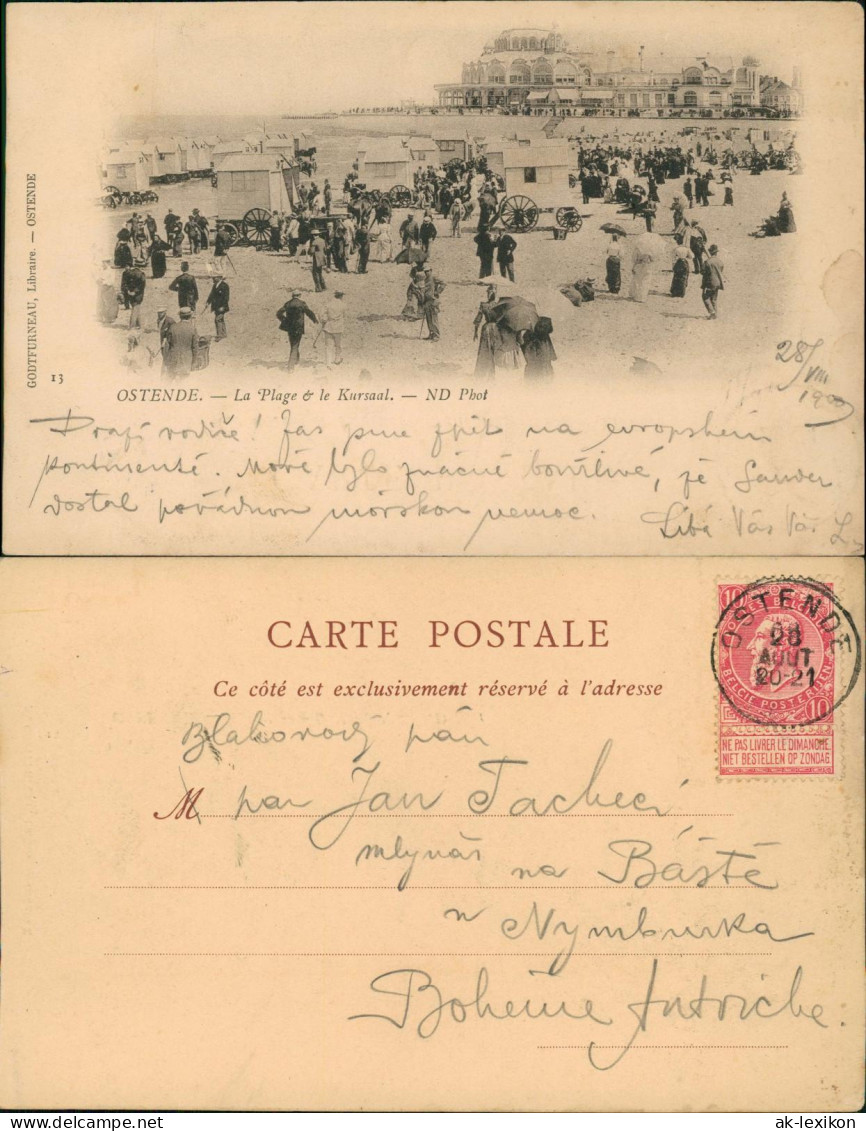 GODTFURNEAU, Libraire. — OSTENDE
13
OSTENDE. — La Plage & le Kursaal. — ND Phot
28/VIII
1900
Drazí rodiče! Jas jsme zpět na evropském
kontinentě. Moře bylo značně bouřlivé, že
dostal pořádnou mořskou nemoc. Líbá Vás Váš L
CARTE POSTALE
Ce côté est exclusivement réservé à l'adresse
OSTENDE
28
AOUT
20-21
10 10
BELGIE POSTERIJEN
NE PAS LIVRER LE DIMANCHE
NIET BESTELLEN OP ZONDAG
pán
M pan Jan
mlynář na Báště
u Nymburka
Bohème Autriche.
ak-lexikon